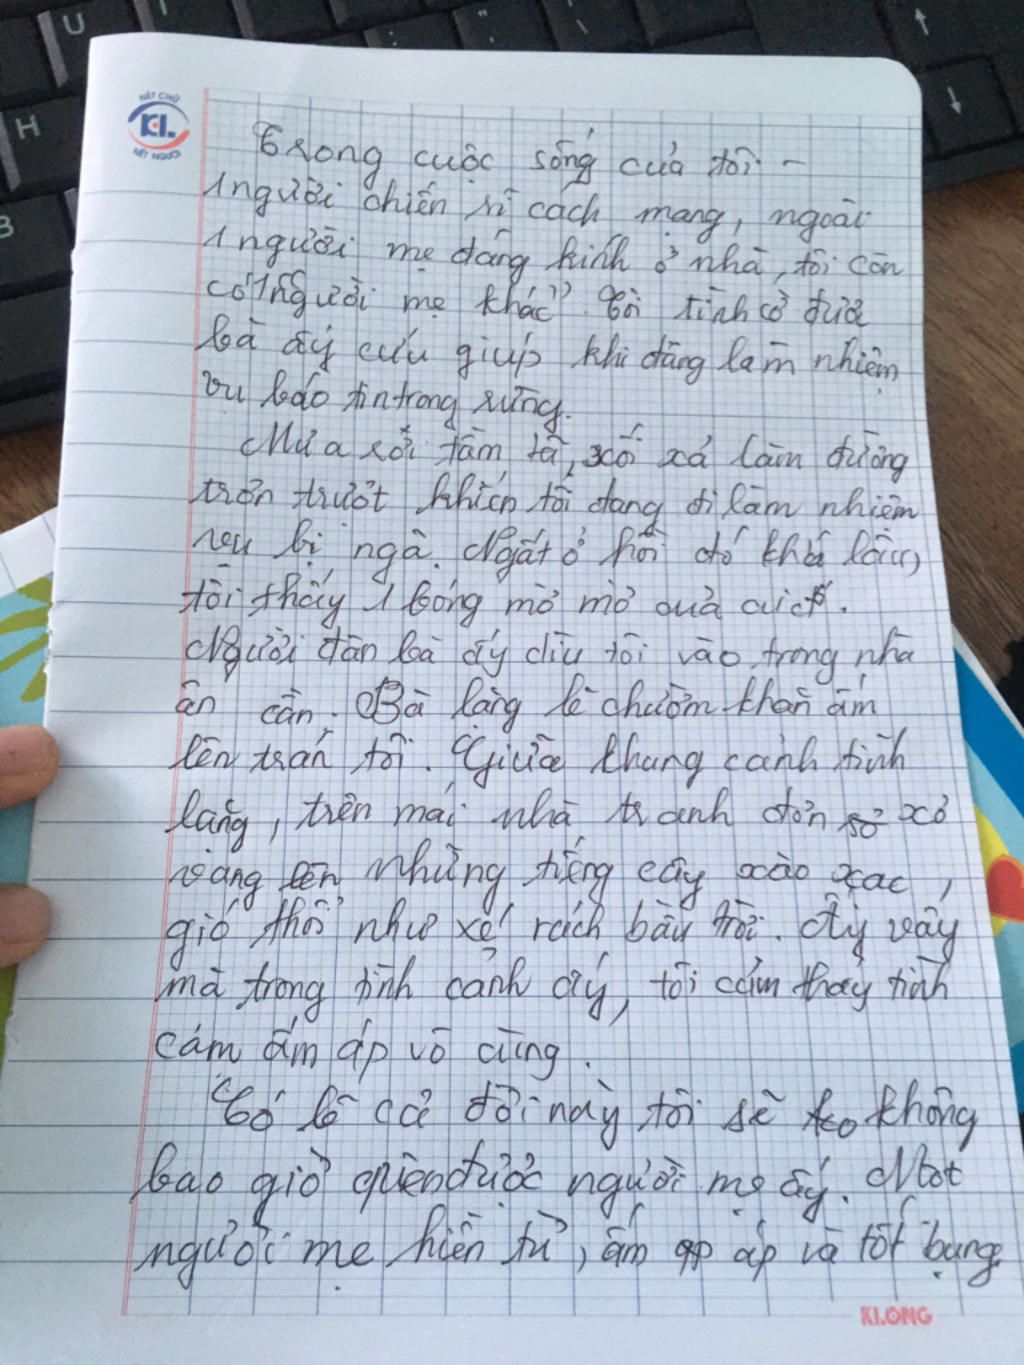 NÉT CHỮ
KL
NẾT NGƯỜI
Trong cuộc sống của tôi -
1 người chiến sĩ cách mạng, ngoài
1 người mẹ đáng kính ở nhà, tôi còn
có "1 người mẹ khác". Tôi tình cờ được
bà ấy cứu giúp khi đang làm nhiệm
vụ báo tin trong rừng.
Mưa rơi tầm tã, xối xả làm đường
trơn trượt khiến tôi đang đi làm nhiệm
vụ bị ngã. Ngất ở hồi đó khá lâu,
tôi thấy 1 bóng mờ mờ của ai đó.
Người đàn bà ấy dìu tôi vào trong nhà
ân cần. Bà lặng lẽ chườm khăn ấm
lên trán tôi. Giữa khung cảnh tĩnh
lặng, trên mái nhà tranh đơn sơ
vang lên những tiếng cây xào xạc,
gió thổi như xé rách bầu trời. Ấy vậy
mà trong tình cảnh ấy, tôi cảm thấy tình
cảm ấm áp vô cùng.
Có lẽ cả đời này tôi sẽ không
bao giờ quên được người mẹ ấy. Một
người mẹ hiền từ, ấm áp và tốt bụng
KLONG